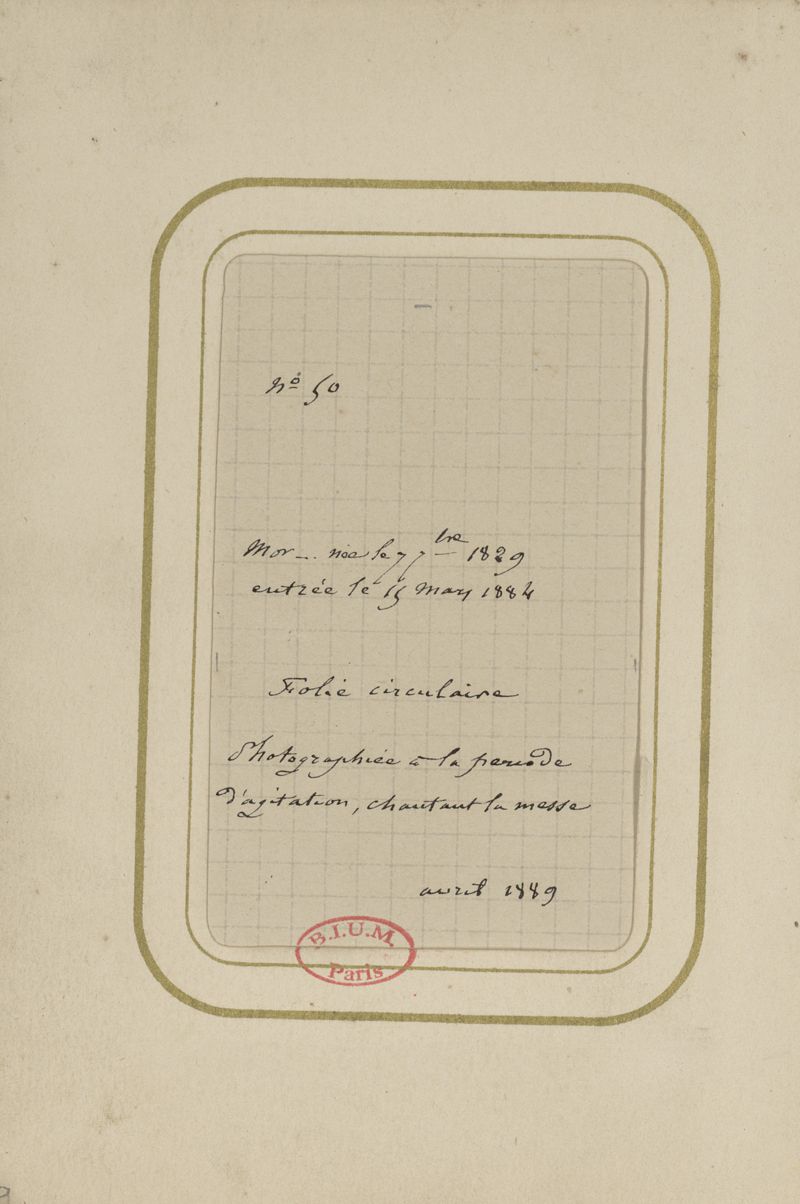 nº 50
Mor... née le 7 7bre 1829
entrée le 15 mars 1884
Folie circulaire
Photographiée à la période
d'agitation, chantant la messe
avril 1889
B.I.U.M.
Paris